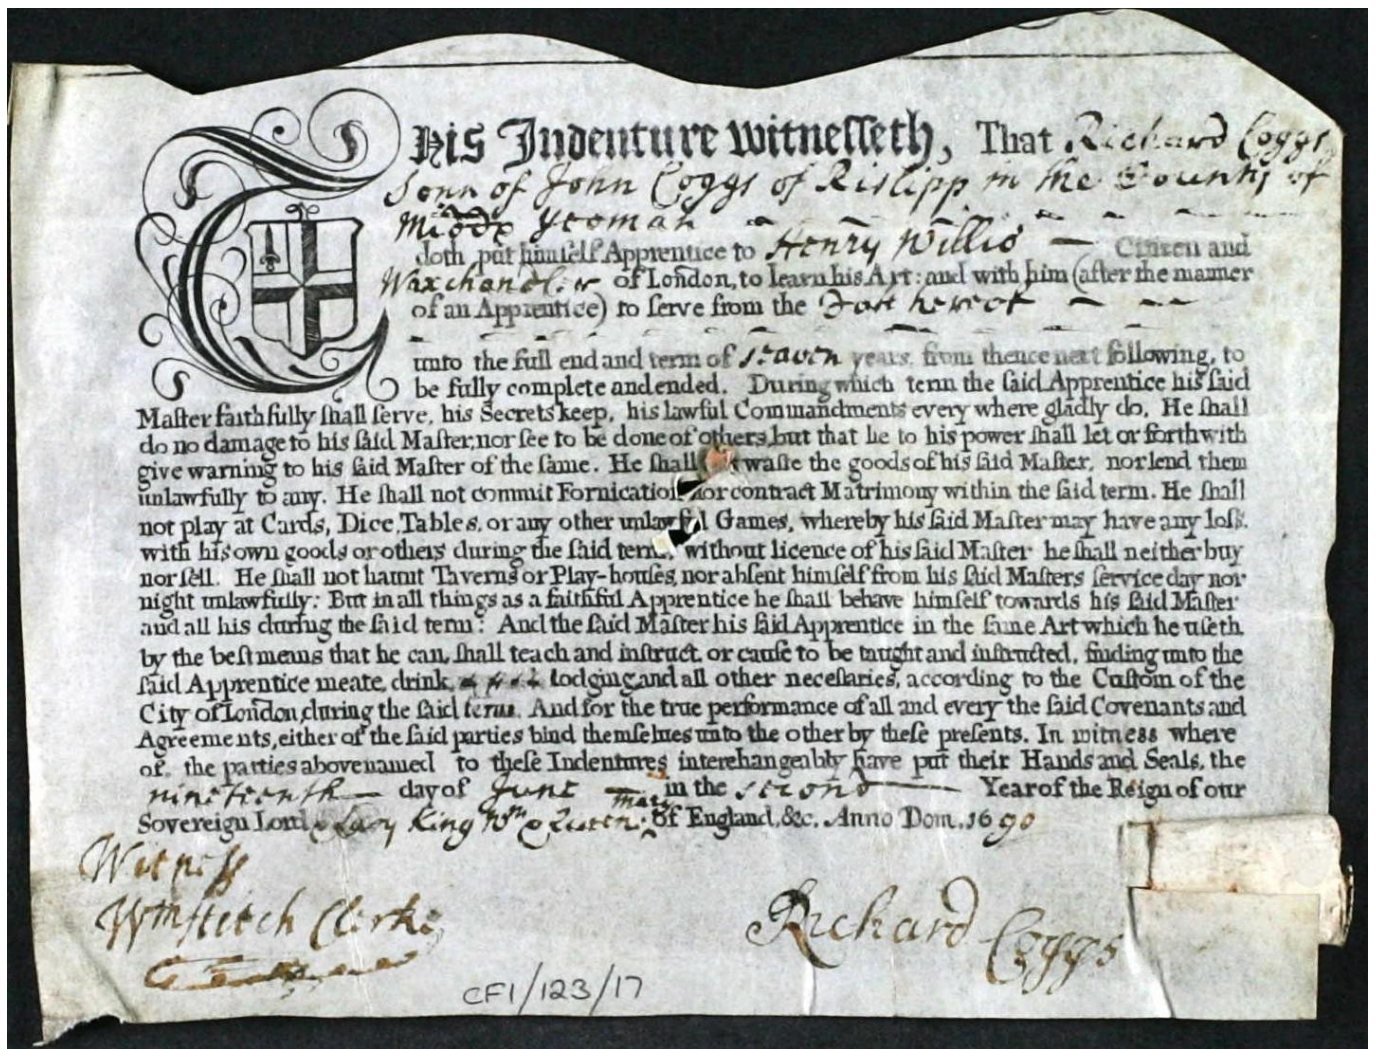 This Indenture witnesseth, That Richard Coggs
Sonn of John Coggs of Rislipp in the County of
Middx Yeoman
doth put himself Apprentice to Henry Willis Citizen and
Waxchandler of London, to learn his Art: and with him (after the manner
of an Apprentice) to serve from the Date hereof
unto the full end and term of seaven years, from thence next following, to
be fully complete and ended. During which term the said Apprentice his said
Master faithfully shall serve, his Secrets keep, his lawful Commandments every where gladly do, He shall
do no damage to his said Master, nor see to be done of others, but that he to his power shall let or forthwith
give warning to his said Master of the same. He shall waste the goods of his said Master, nor lend them
unlawfully to any. He shall not commit Fornication nor contract Matrimony within the said term. He shall
not play at Cards, Dice, Tables, or any other unlawful Games, whereby his said Master may have any loss.
with his own goods or others during the said term, without licence of his said Master he shall neither buy
nor sell. He shall not haunt Taverns or Play-houses, nor absent himself from his said Masters service day nor
night unlawfully: But in all things as a faithful Apprentice he shall behave himself towards his said Master
and all his during the said term: And the said Master his said Apprentice in the same Art which he useth
by the best means that he can, shall teach and instruct, or cause to be taught and instructed, finding unto the
said Apprentice meate, drink, lodging and all other necessaries, according to the Custom of the
City of London, during the said term. And for the true performance of all and every the said Covenants and
Agreements, either of the said parties bind themselves unto the other by these presents. In witness where
of, the parties abovenamed to these Indentures interchangeably have put their Hands and Seals, the
nineteenth day of June in the second Year of the Reign of our
Sovereign Lord & Lady King Wm & Queen Mary of England, &c. Anno Dom. 1690
Witness
Wm Clerke
Richard Coggs
CF1/123/17